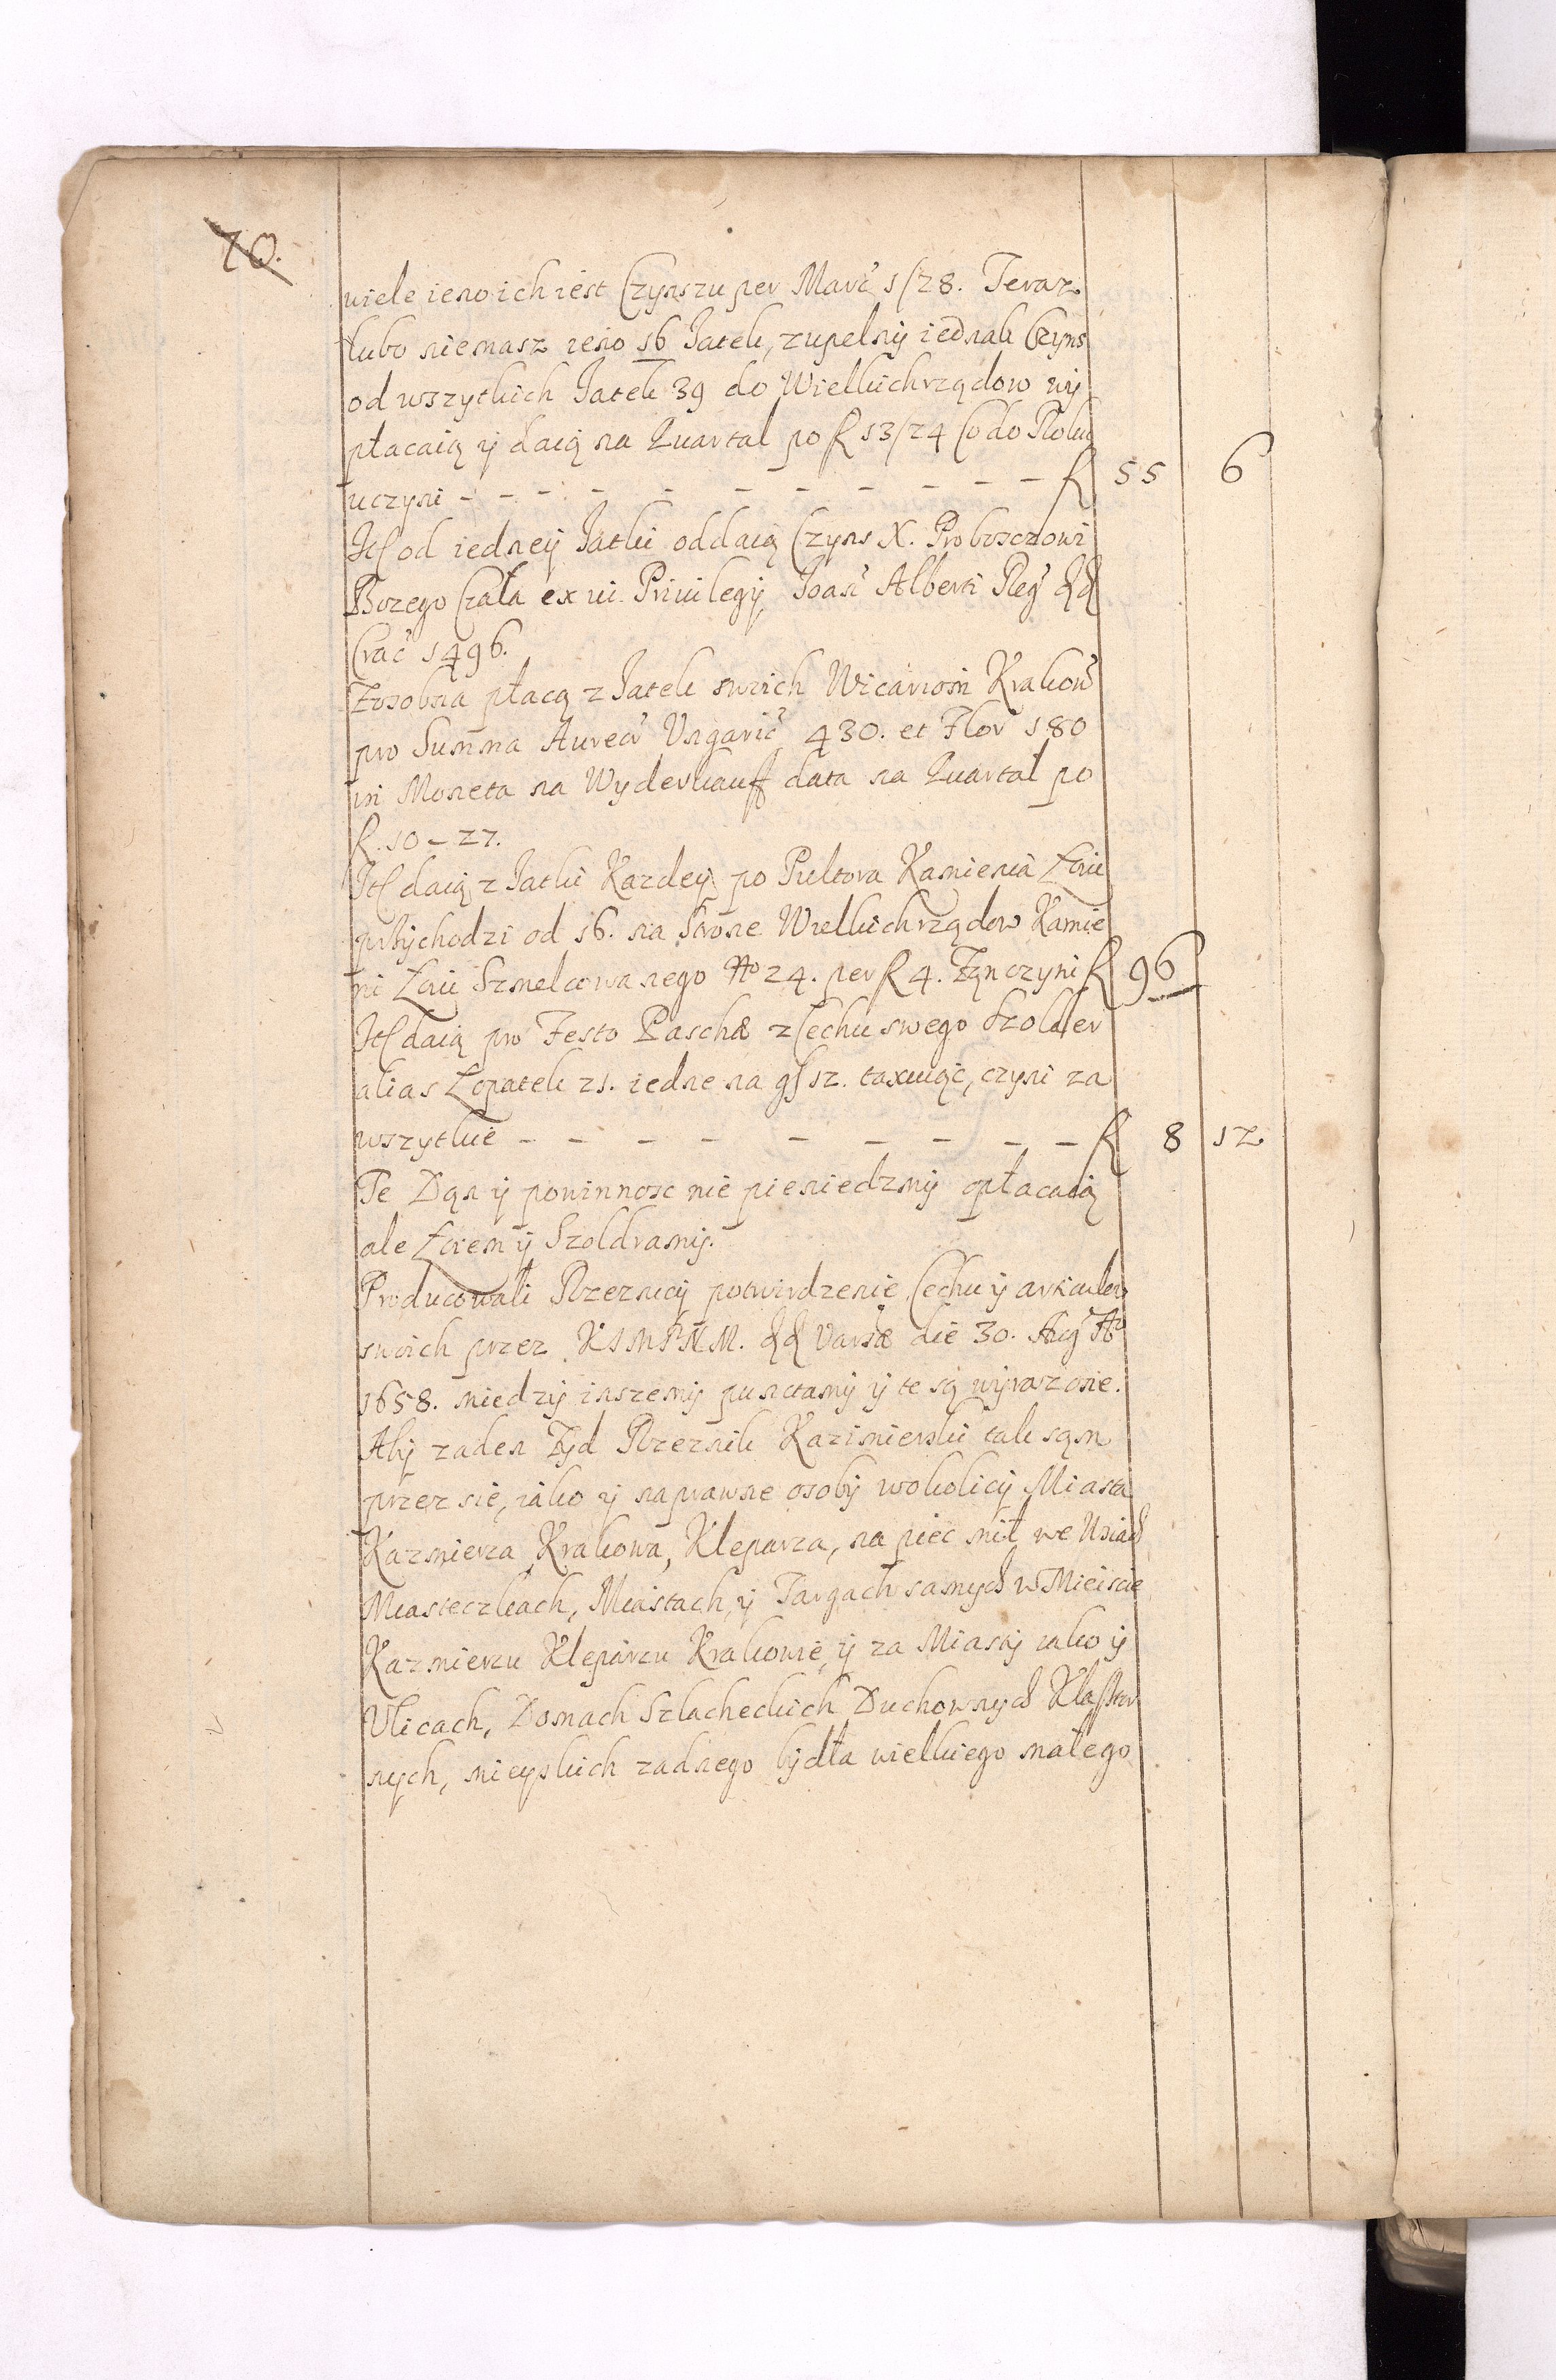 70.
wiele ieno ich iest Czynszu per Marc 1/28. Teraz
lubo niemasz ieno 16 Jatek, zupelny iednak Czyns
od wszytkich Jatek 39 do Wielkichrządow wy
płacaią y daią na Quartal po fl 13/24 Co do Roku
uczyni - - - - - - - - - - fl 55 6
Itt od iedney Jatki oddaią Czyns X. Proboszczowi
Bozego Ciała ex vi Priuilegij Joan Alberti Reg dd
Crac 1496.
Zosobna płacą z Jatek swoich Wicariom Krakow
pro Summa Aureor Ungaric 430. et Flor 180
in Moneta na Wyderkauff data na Quartal po
fl. 10 - 27.
Itt daią z Jatki Kazdey po Pultora Kamienia Łoiu
przychodzi od 16. na strone Wielkichrządow Kamie
ni Łoiu Szmelcowanego No 24. per fl 4. czyni fl 96
Itt daią pro Festo Paschæ z Cechu swego Szolder
alias Lopatek 21. iedne na g/12. taxuiąc, czyni za
wszytkie - - - - - - - - - fl 8 12
Te Dan y powinnosc nie pieniedzmy opłacaią
ale Łoiem y Szoldramy.
Producowali Rzeznicy potwirdzenie Cechu y artikulow
swoich przez KIMPNM. dd Varsæ die 30. Aug Ao
1658. miedzy inszemy punctamy y te są wyrazone.
Aby zaden Zyd Rzeznik Kazimierski tak sąm
przez sie, iako y naprawne osoby wokolicy Miasta
Kazmierza Krakowa, Kleparza, na piec mil we Wsiach
Miasteczkach, Miastach, y Targach samych w Miescie
Kazmierzu Kleparzu Krakowie, y za Miasty iako y
Vlicach, Domach Szlacheckich Duchownych Klasztor
nych, mieyskich zadnego bydła wielkiego małego